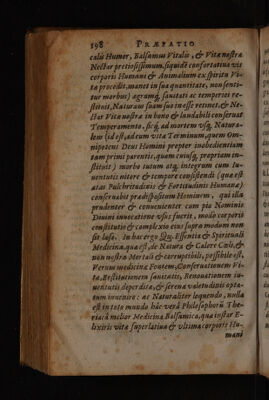 198 PRÆFATIO
calis Humor, Balsamus Vitalis, & Vitæ nostræ
Nectar pretiosissimum, siquidē confortativa vis
corporis Humani & Animalium ex spiritu Vi-
tæ procedit, manet in sua quantitate, non senti-
tur morbus) ægrumq́; sanitati ac temperiei re-
stituit, Naturam suam suo in esse retinet, & Ne-
ctar Vitæ nostræ in bono & laudabili conservat
Temperamento, sicq́; ad mortem vsq; Natura-
lem (id est, ad eum vitæ Terminum, quem Om-
nipotens Deus Homini propter inobedientiam
tam primi parentis, quam cuiusq; propriam in-
stituit) morbo tutam atq; integram cum Iu-
ventutis nitore & tempore consistendi (quæ est
ætas Pulchritudinis & Fortitudinis Humanæ)
conservabit prædispositum Hominem, qui illa
prudenter & convenienter cum pia Nominis
Divini invocatione vsus fuerit, modò corporis
constitutio & complexio eius supra modum non
sit lusa. In hac ergo Qu. Essentia & Spirituali
Medicina, quæ est, de Natura & Calore Cæli, &
non nostra Mortali & corruptibili, possibile est,
Verum medicinæ Fontem, Conservationem Vi-
tæ, Restitutionem sanitatis, Renovationem iu-
ventutis deperditæ, & serenæ valetudinis opta-
tum invenire: ac Naturaliter loquendo, nulla
est in toto mundo hâc verâ Philosophorū The-
riacâ melior Medicina Balsamica, quæ instar E-
lixiris vitæ superlativa & vltima corporis Hu-
mani